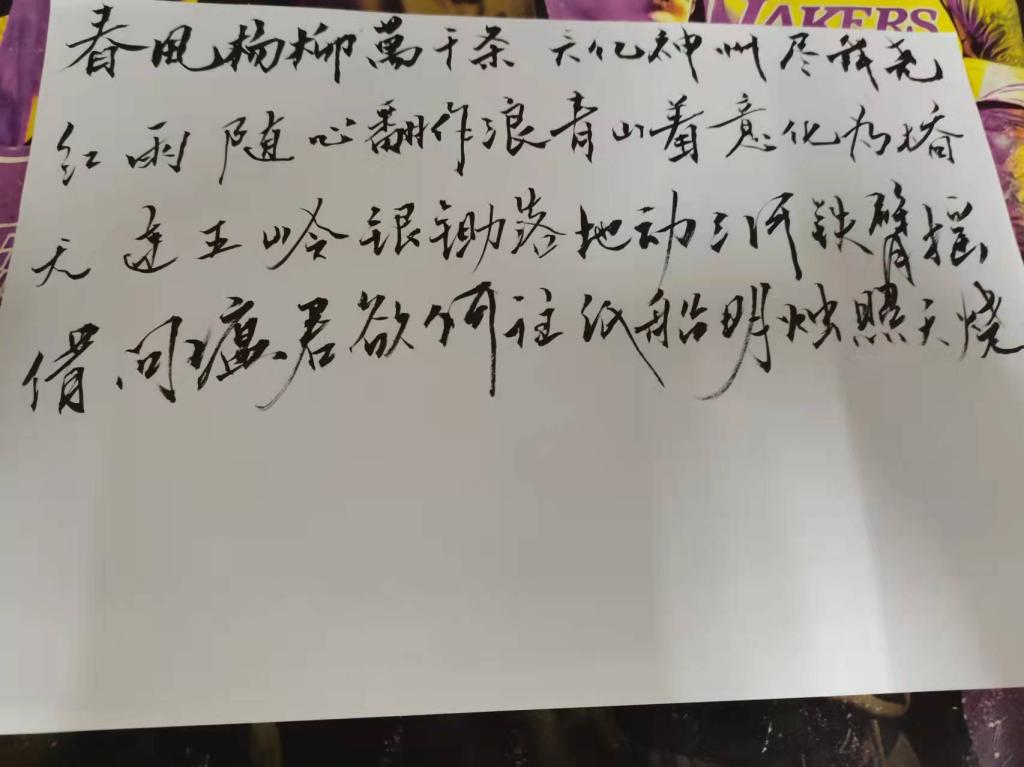 LAKERS
春风杨柳萬千条 六亿神州尽舜尧
红雨随心翻作浪青山着意化为桥
天连五岭银锄落地动三河铁臂摇
借问瘟君欲何往纸船明烛照天烧